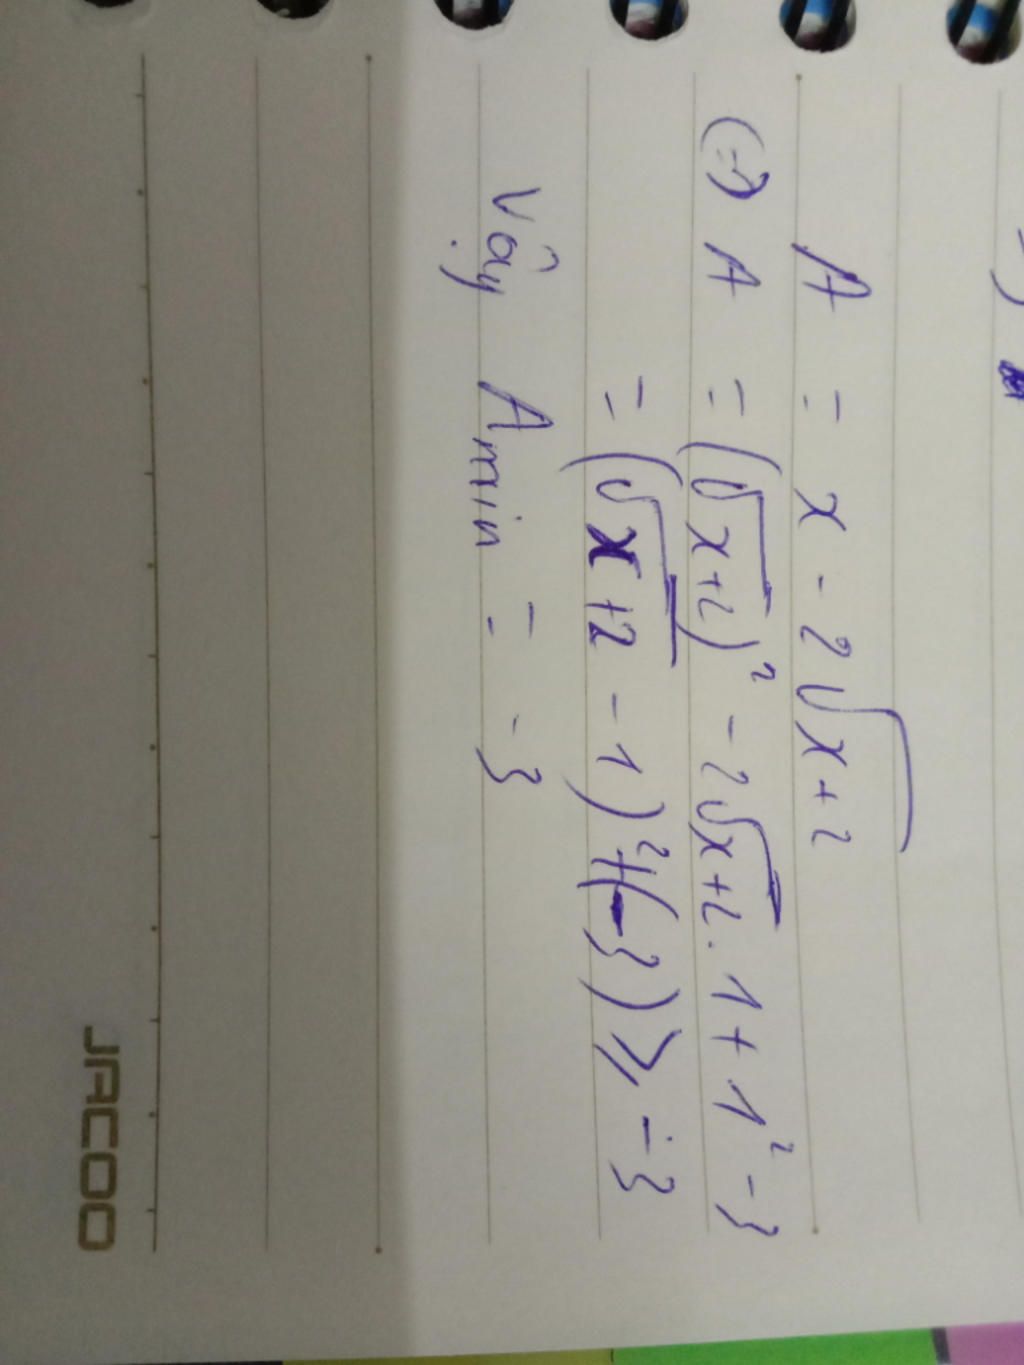 A = x - 2√x+2
(=) A = (√x+2)² - 2√x+2 . 1 + 1² - 3
= (√x+2 - 1)² + (-3) ⩾ -3
Vậy A min = -3
JACOO